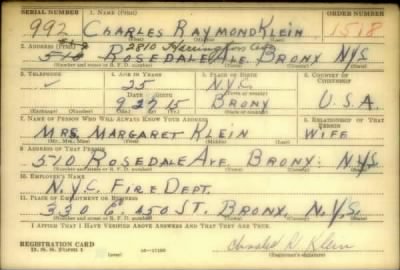 SERIAL NUMBER 1. NAME (Print) ORDER NUMBER
992 CHARLES RAYMOND KLEIN 1518
(First) (Middle) (Last)
2. ADDRESS (Print) 2810 Harrington Ave
510 ROSEDALE AVE. BRONX NYS
(Number and street or R. F. D. number) (Town) (County) (State)
3. TELEPHONE 4. AGE IN YEARS 5. PLACE OF BIRTH 6. COUNTRY OF CITIZENSHIP
25 N.Y.C.
DATE OF BIRTH (Town or county)
9 27 15 BRONX U.S.A.
(Exchange) (Number) (Mo.) (Day) (Yr.) (State or country)
7. NAME OF PERSON WHO WILL ALWAYS KNOW YOUR ADDRESS 8. RELATIONSHIP OF THAT PERSON
MRS. MARGARET KLEIN WIFE
(Mr., Mrs., Miss) (First) (Middle) (Last)
9. ADDRESS OF THAT PERSON
510 ROSEDALE AVE. BRONX. N.Y.S.
(Number and street or R. F. D. number) (Town) (County) (State)
10. EMPLOYER'S NAME
N.Y.C. FIRE DEPT.
11. PLACE OF EMPLOYMENT OR BUSINESS
330 E. 150 ST. BRONX N.Y.S.
(Number and street or R. F. D. number) (Town) (County) (State)
I AFFIRM THAT I HAVE VERIFIED ABOVE ANSWERS AND THAT THEY ARE TRUE.
REGISTRATION CARD
D. S. S. FORM 1 (over) Charles R Klein
(Registrant's signature)